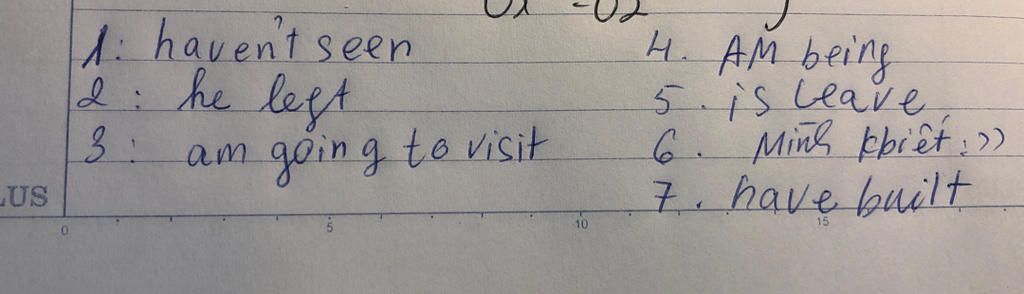 1: haven't seen
2: he left
3: am going to visit
4. AM being
5. is leave
6. Mình kbiết :))
7. have built
LUS
0 5 10 15